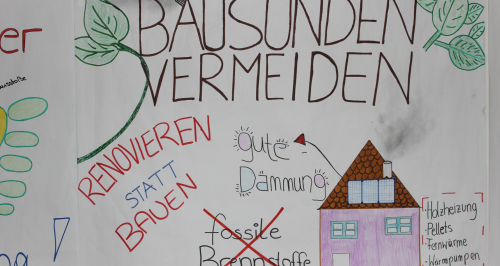 BAUSÜNDEN
VERMEIDEN
er
RENOVIEREN
STATT
BAUEN
gute
Dämmung
fossile
Brennstoffe
Holzheizung
Pellets
Fernwärme
Warmpumpen